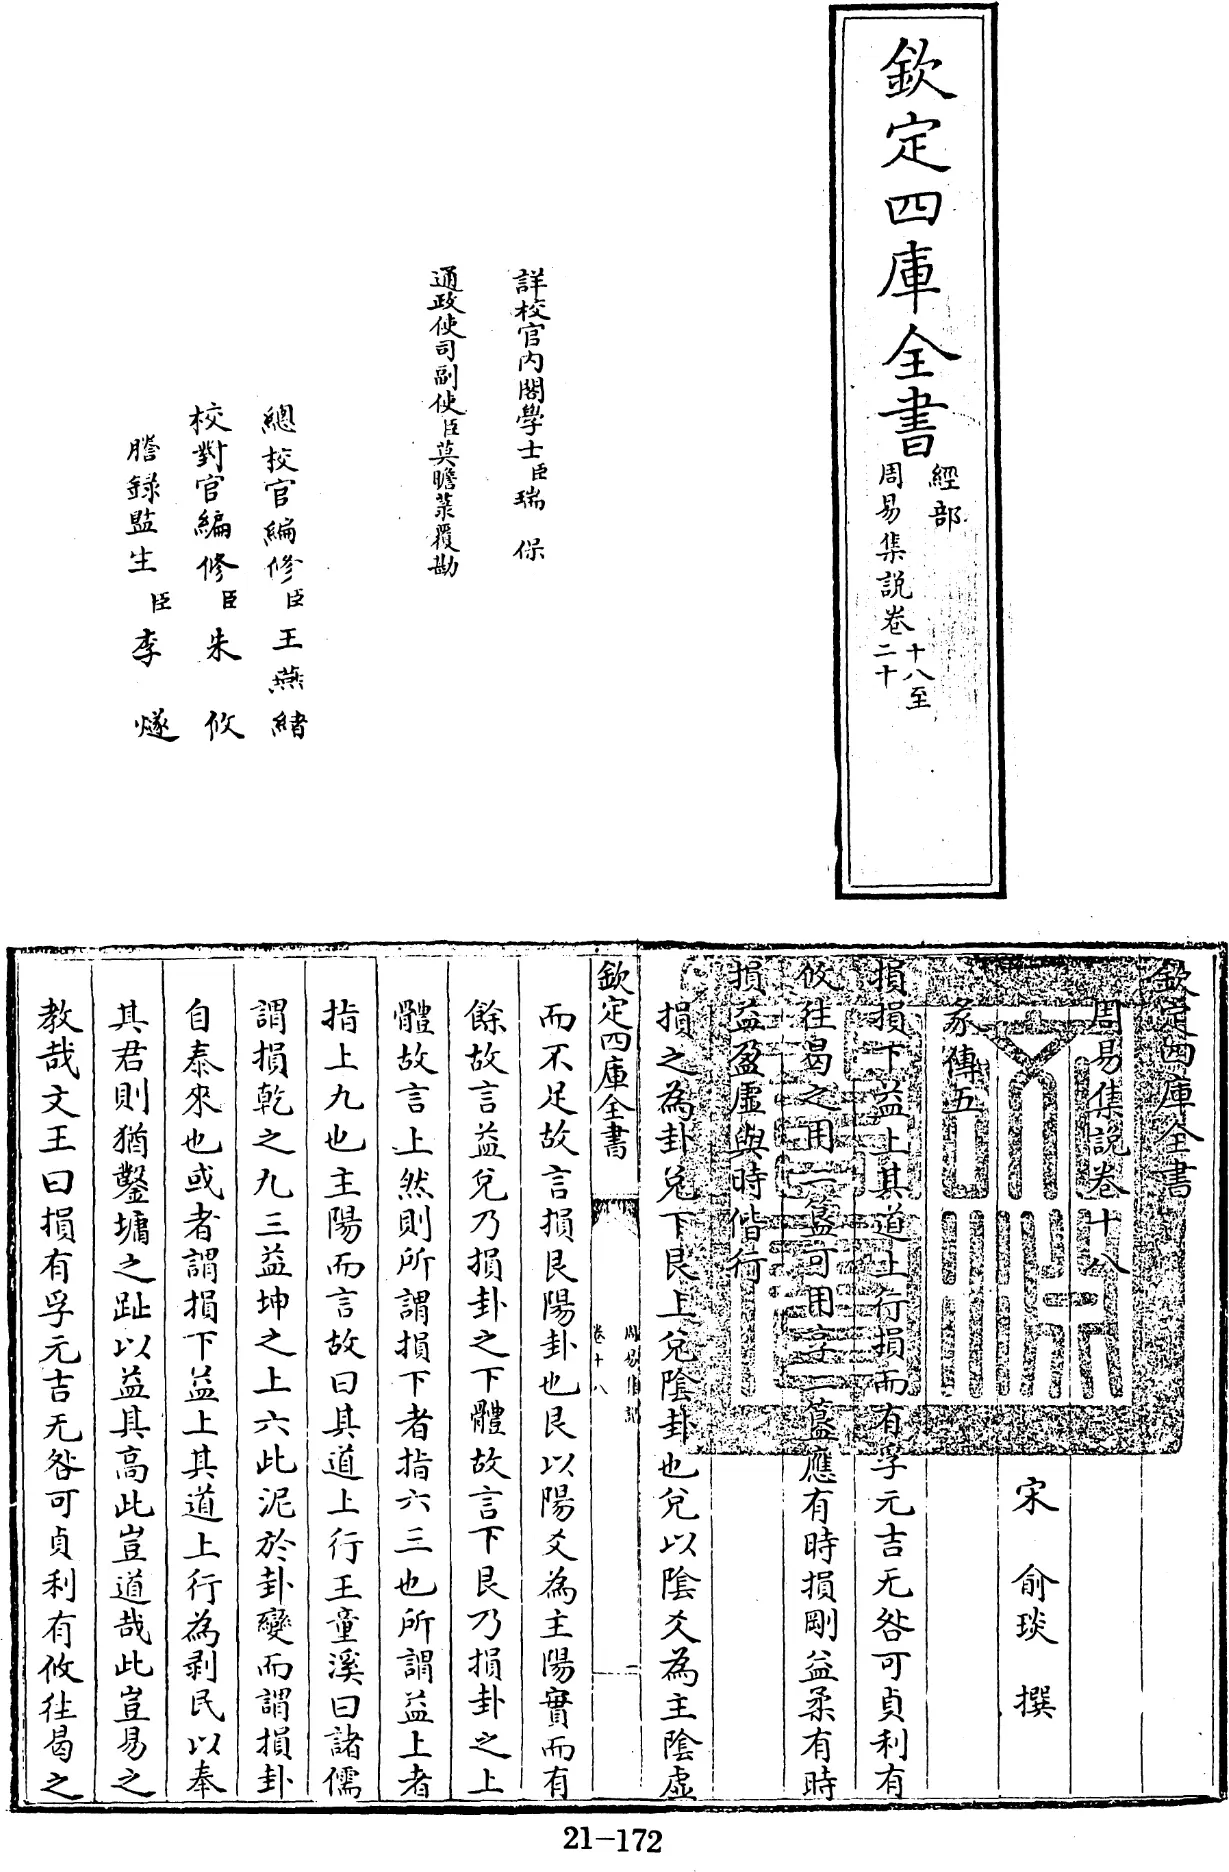 欽定四庫全書
經部
周易集説卷
十八至
二十
詳校官內閣學士臣瑞保
通政使司副使臣莫瞻菉覆勘
總校官編修臣王燕緒
校對官編修臣朱攸
謄錄監生臣李燧
欽定四庫全書
周易集説卷十八
宋 俞琰 撰
彖傳五
損損下益上其道上行損而有孚元吉无咎可貞利有
攸往曷之用二簋可用享二簋應有時損剛益柔有時
損益盈虛與時偕行
損之為卦兌下艮上兌陰卦也兌以陰爻為主陰虛
欽定四庫全書
周易集說
卷十八
一
而不足故言損艮陽卦也艮以陽爻為主陽實而有
餘故言益兌乃損卦之下體故言下艮乃損卦之上
體故言上然則所謂損下者指六三也所謂益上者
指上九也主陽而言故曰其道上行王童溪曰諸儒
謂損乾之九三益坤之上六此泥於卦變而謂損卦
自泰來也或者謂損下益上其道上行為剥民以奉
其君則猶鑿墉之趾以益其高此豈道哉此豈易之
教哉文王曰損有孚元吉无咎可貞利有攸往曷之
21-172